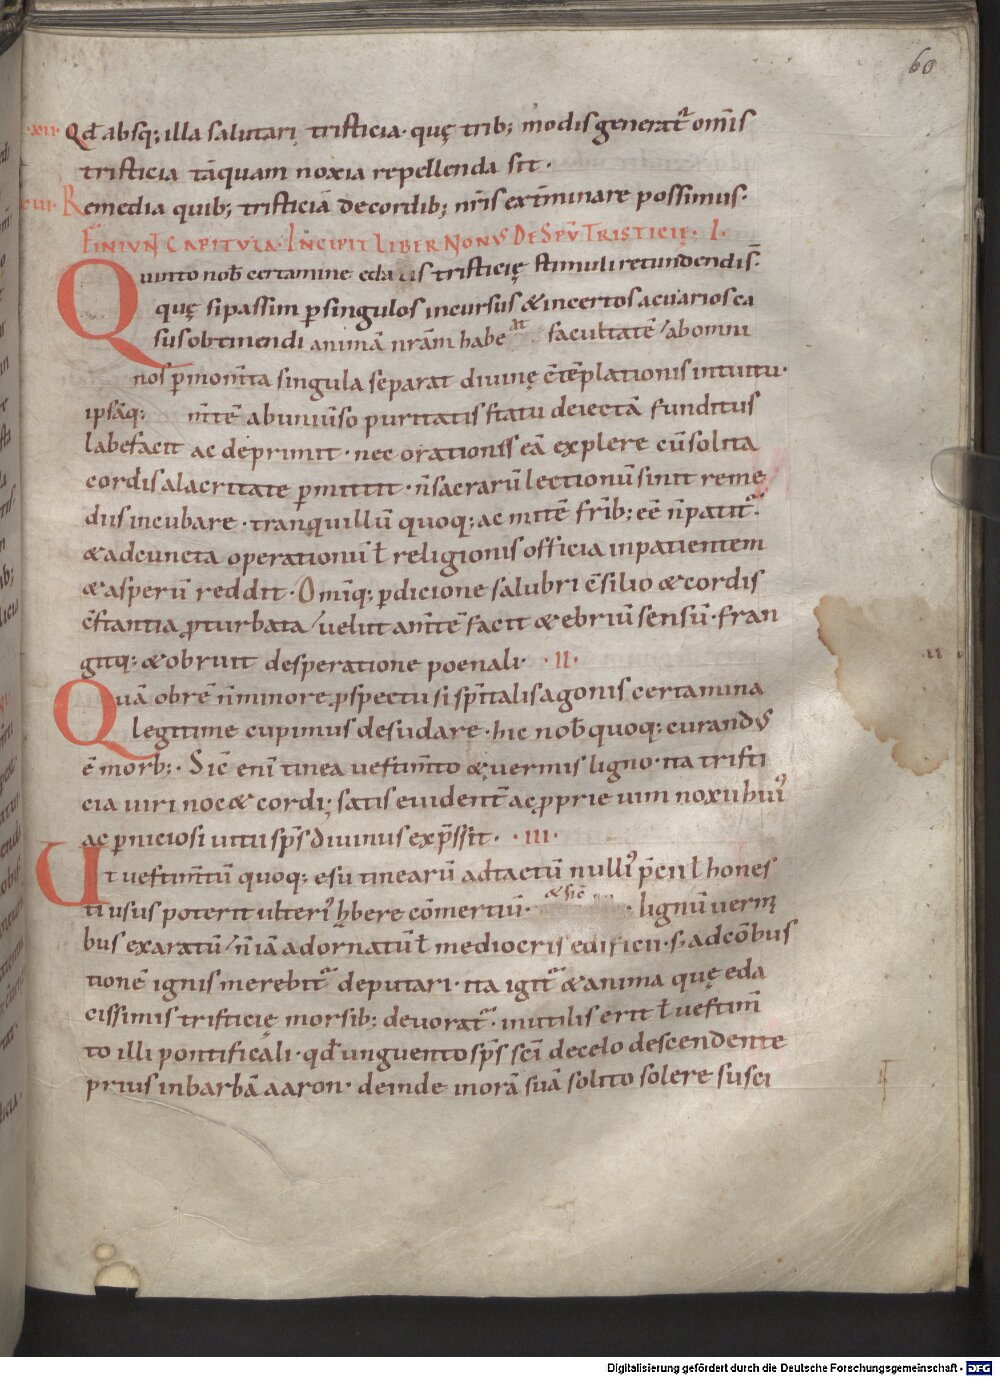 60
.xii. Qđ absq; illa salutari tristicia · quę trib; modis generat͛ om̄is
tristicia tāquam noxia repellenda sit ·
xiii· Remedia quib; tristiciā de cordib; nr̄is ext̄minare possimus ·
FINIUNT CAPITULA · INCIPIT LIBER NONUS DE SPŪ TRISTICIĘ · I ·
Quinto nob̄ certamine edacis tristicię stimuli retundendi s̄ ·
quę si passim p singulos incursus & incertos ac uarios ca
sus obtinendi animā nr̄am habe facultatē / ab omni
nos p mom̄ta singula separat diuinę c̄tēplationis intuitu ·
ipsāq; m̄tē ab uniūso puritatis statu deiectā funditus
labefacit ac deprimit · nec orationis eā explere cū solita
cordis alacritate p mittit · n̄ sacrarū lectionū sinit reme
diis incubare · tranquillū quoq; ac mitē fr̄ib; eē n̄ patit͛ ·
& ad cuncta operationum ł religionis officia inpatientem
& asperū reddit · Omīq; pdicione salubri c̄silio & cordis
c̄stantia pturbata / uelut am̄tē facit & ebriū sensū · fran
gitq; & obruit desperatione poenali · · II ·
Quā obrē n̄ minore pspectu si sp̄italis agonis certamina
legitime cupimus desudare · hic nob̄ quoq; curandus
ē morb; · Sic̄ enī tinea uestim̄to & uermis ligno · ita tristi
cia uiri noc& cordi; satis euident̄ ac pprie uim noxii hui᾿
ac pniciosi uitii sp̄s diuinus exp̄ssit · · III ·
Ut uestim̄tū quoq; esu tinearū adtactū nulli᾿ p̄cii ł hones
ti usus poterit ulteri᾿ hb̄ere cōmertiū · & sic̄ · lignū uermi
bus exaratū / n̄ iā ad ornatū ł mediocris edificii · s; ad cōbus
tionē ignis merebit͛ deputari · ita igit͛ & anima quę eda
cissimis tristicię morsib; deuorat͛ · inutilis erit ł uestim̄
to illi pontificali · qđ unguento sp̄s sc̄i de celo descendente
prius in barbā aaron · deinde in orā suā solito solere susci
Digitalisierung gefördert durch die Deutsche Forschungsgemeinschaft - DFG